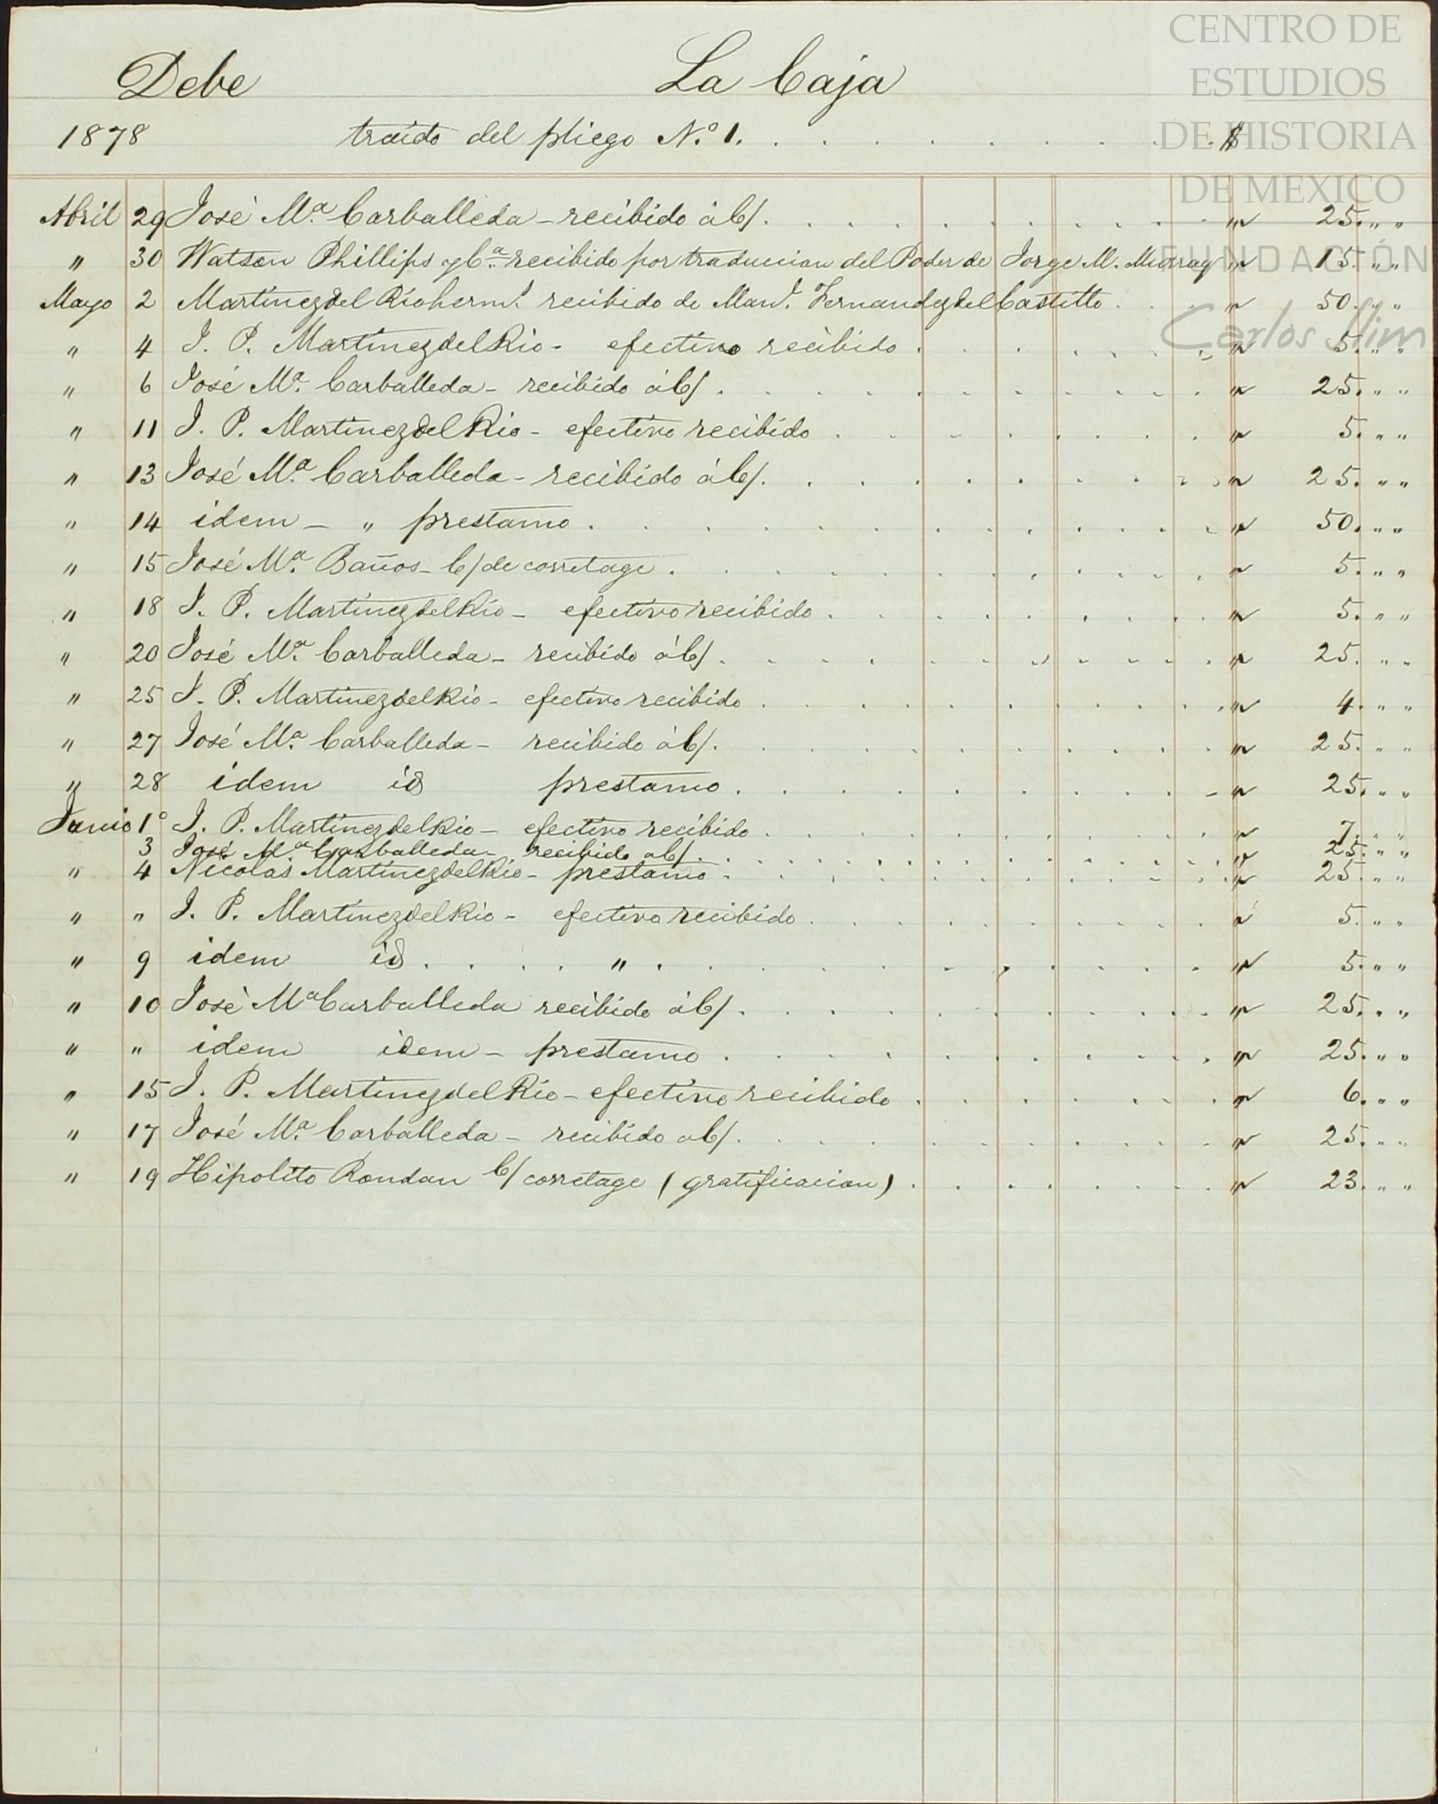 CENTRO DE
ESTUDIOS
DE HISTORIA
DE MEXICO
FUNDACIÓN
Carlos Slim
Debe La Caja
1878 traido del pliego N.º 1. $
Abril 29 José M.ª Carballeda - recibido á C/. " 25. " "
" 30 Watson Phillips y C.ª recibido por traduccion del Poder de Jorge M. Murray " 15. " "
Mayo 2 Martinez del Rio herm.s recibido de Man.l Fernandez del Castillo " 50. " "
" 4 J. P. Martinez del Rio - efectivo recibido " 5. " "
" 6 José M.ª Carballeda - recibido á C/. " 25. " "
" 11 J. P. Martinez del Rio - efectivo recibido " 5. " "
" 13 José M.ª Carballeda - recibido á C/. " 25. " "
" 14 idem - " prestamo " 50. " "
" 15 José M.ª Baños - C/ de corretage " 5. " "
" 18 J. P. Martinez del Rio - efectivo recibido " 5. " "
" 20 José M.ª Carballeda - recibido á C/. " 25. " "
" 25 J. P. Martinez del Rio - efectivo recibido " 4. " "
" 27 José M.ª Carballeda - recibido á C/. " 25. " "
" 28 idem id prestamo " 25. " "
Junio 1º J. P. Martinez del Rio - efectivo recibido " 7. " "
3 José M.ª Carballeda - recibido a C/. " 25. " "
" 4 Nicolas Martinez del Rio - prestamo " 25. " "
" " J. P. Martinez del Rio - efectivo recibido " 5. " "
" 9 idem id " " 5. " "
" 10 José Mª Carballeda recibido á C/. " 25. " "
" " idem idem - prestamo " 25. " "
" 15 J. P. Martinez del Rio - efectivo recibido " 6. " "
" 17 José M.ª Carballeda - recibido a C/. " 25. " "
" 19 Hipolito Rondan C/ corretage (gratificacion) " 23. " "